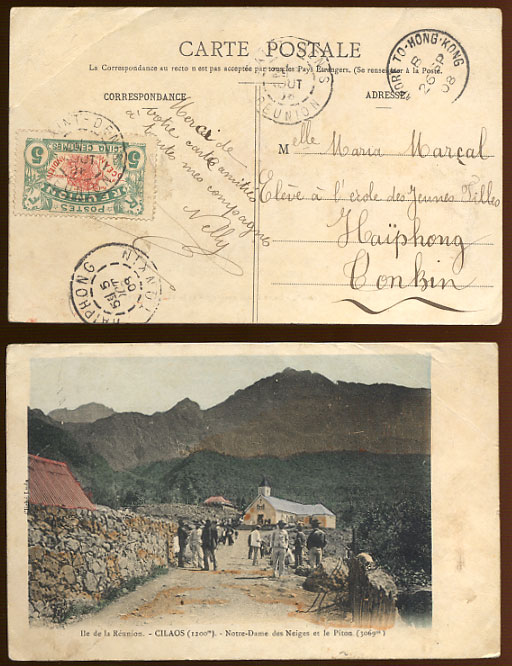 CARTE POSTALE
La Correspondance au recto n est pas acceptée par tous les Pays Étrangers. (Se renseigner à la Poste.
CORRESPONDANCE
ADRESSE
Merci de
votre carte amitiés
à toutes mes compagnes
Nelly
Mlle Maria Marçal
Elève à l'école des Jeunes Filles
Haïphong
Tonkin
5 CINQ CENTIMES 5
RÉUNION
POSTES
SAINT-DENIS
RÉUNION
TO-HONG-KONG
B
26 SP
08
HAIPHONG
TONKIN
Cliché Luda
Ile de la Réunion. - CILAOS (1200m). - Notre-Dame des Neiges et le Piton (3069m)